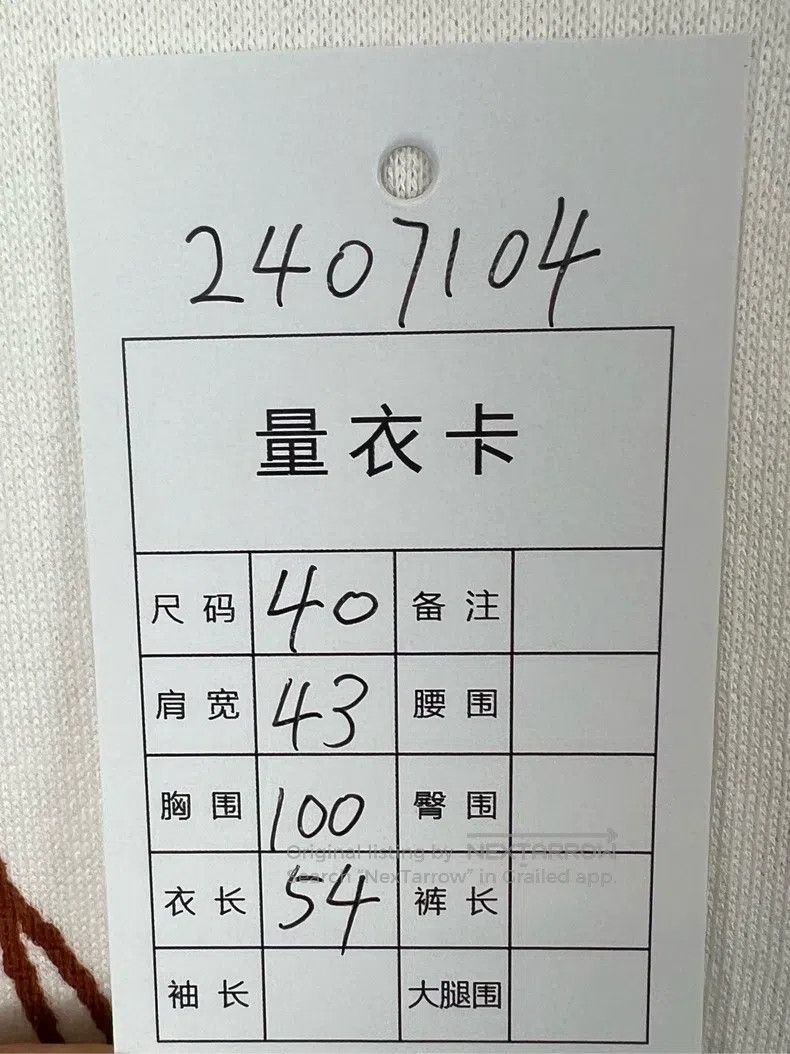 2407104
量衣卡
尺码 40 备注
肩宽 43 腰围
胸围 100 臀围
Original listing by NEXTARROW
Search "NexTarrow" in Grailed app.
衣长 54 裤长
袖长 大腿围